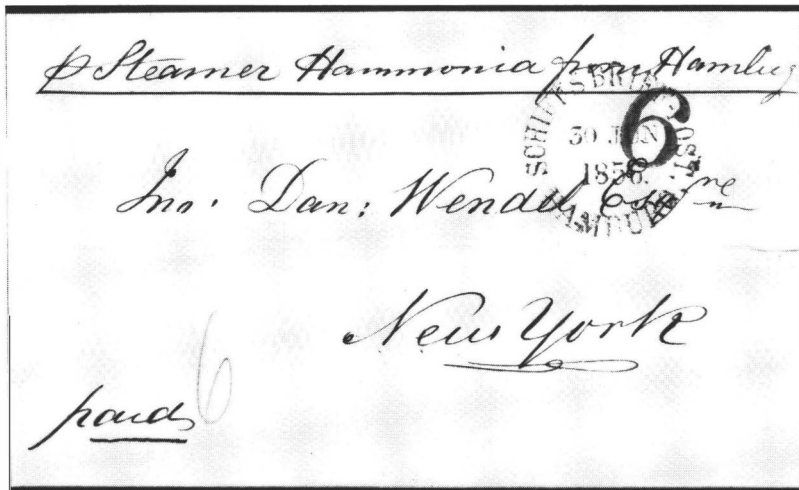 p Steamer Hammonia from Hamburg
SCHIFFSBRIEF POST.
6
30 JUN
1856.
HAMBURG
Jno. Dan: Wendel, Esqre
New York
6
paid